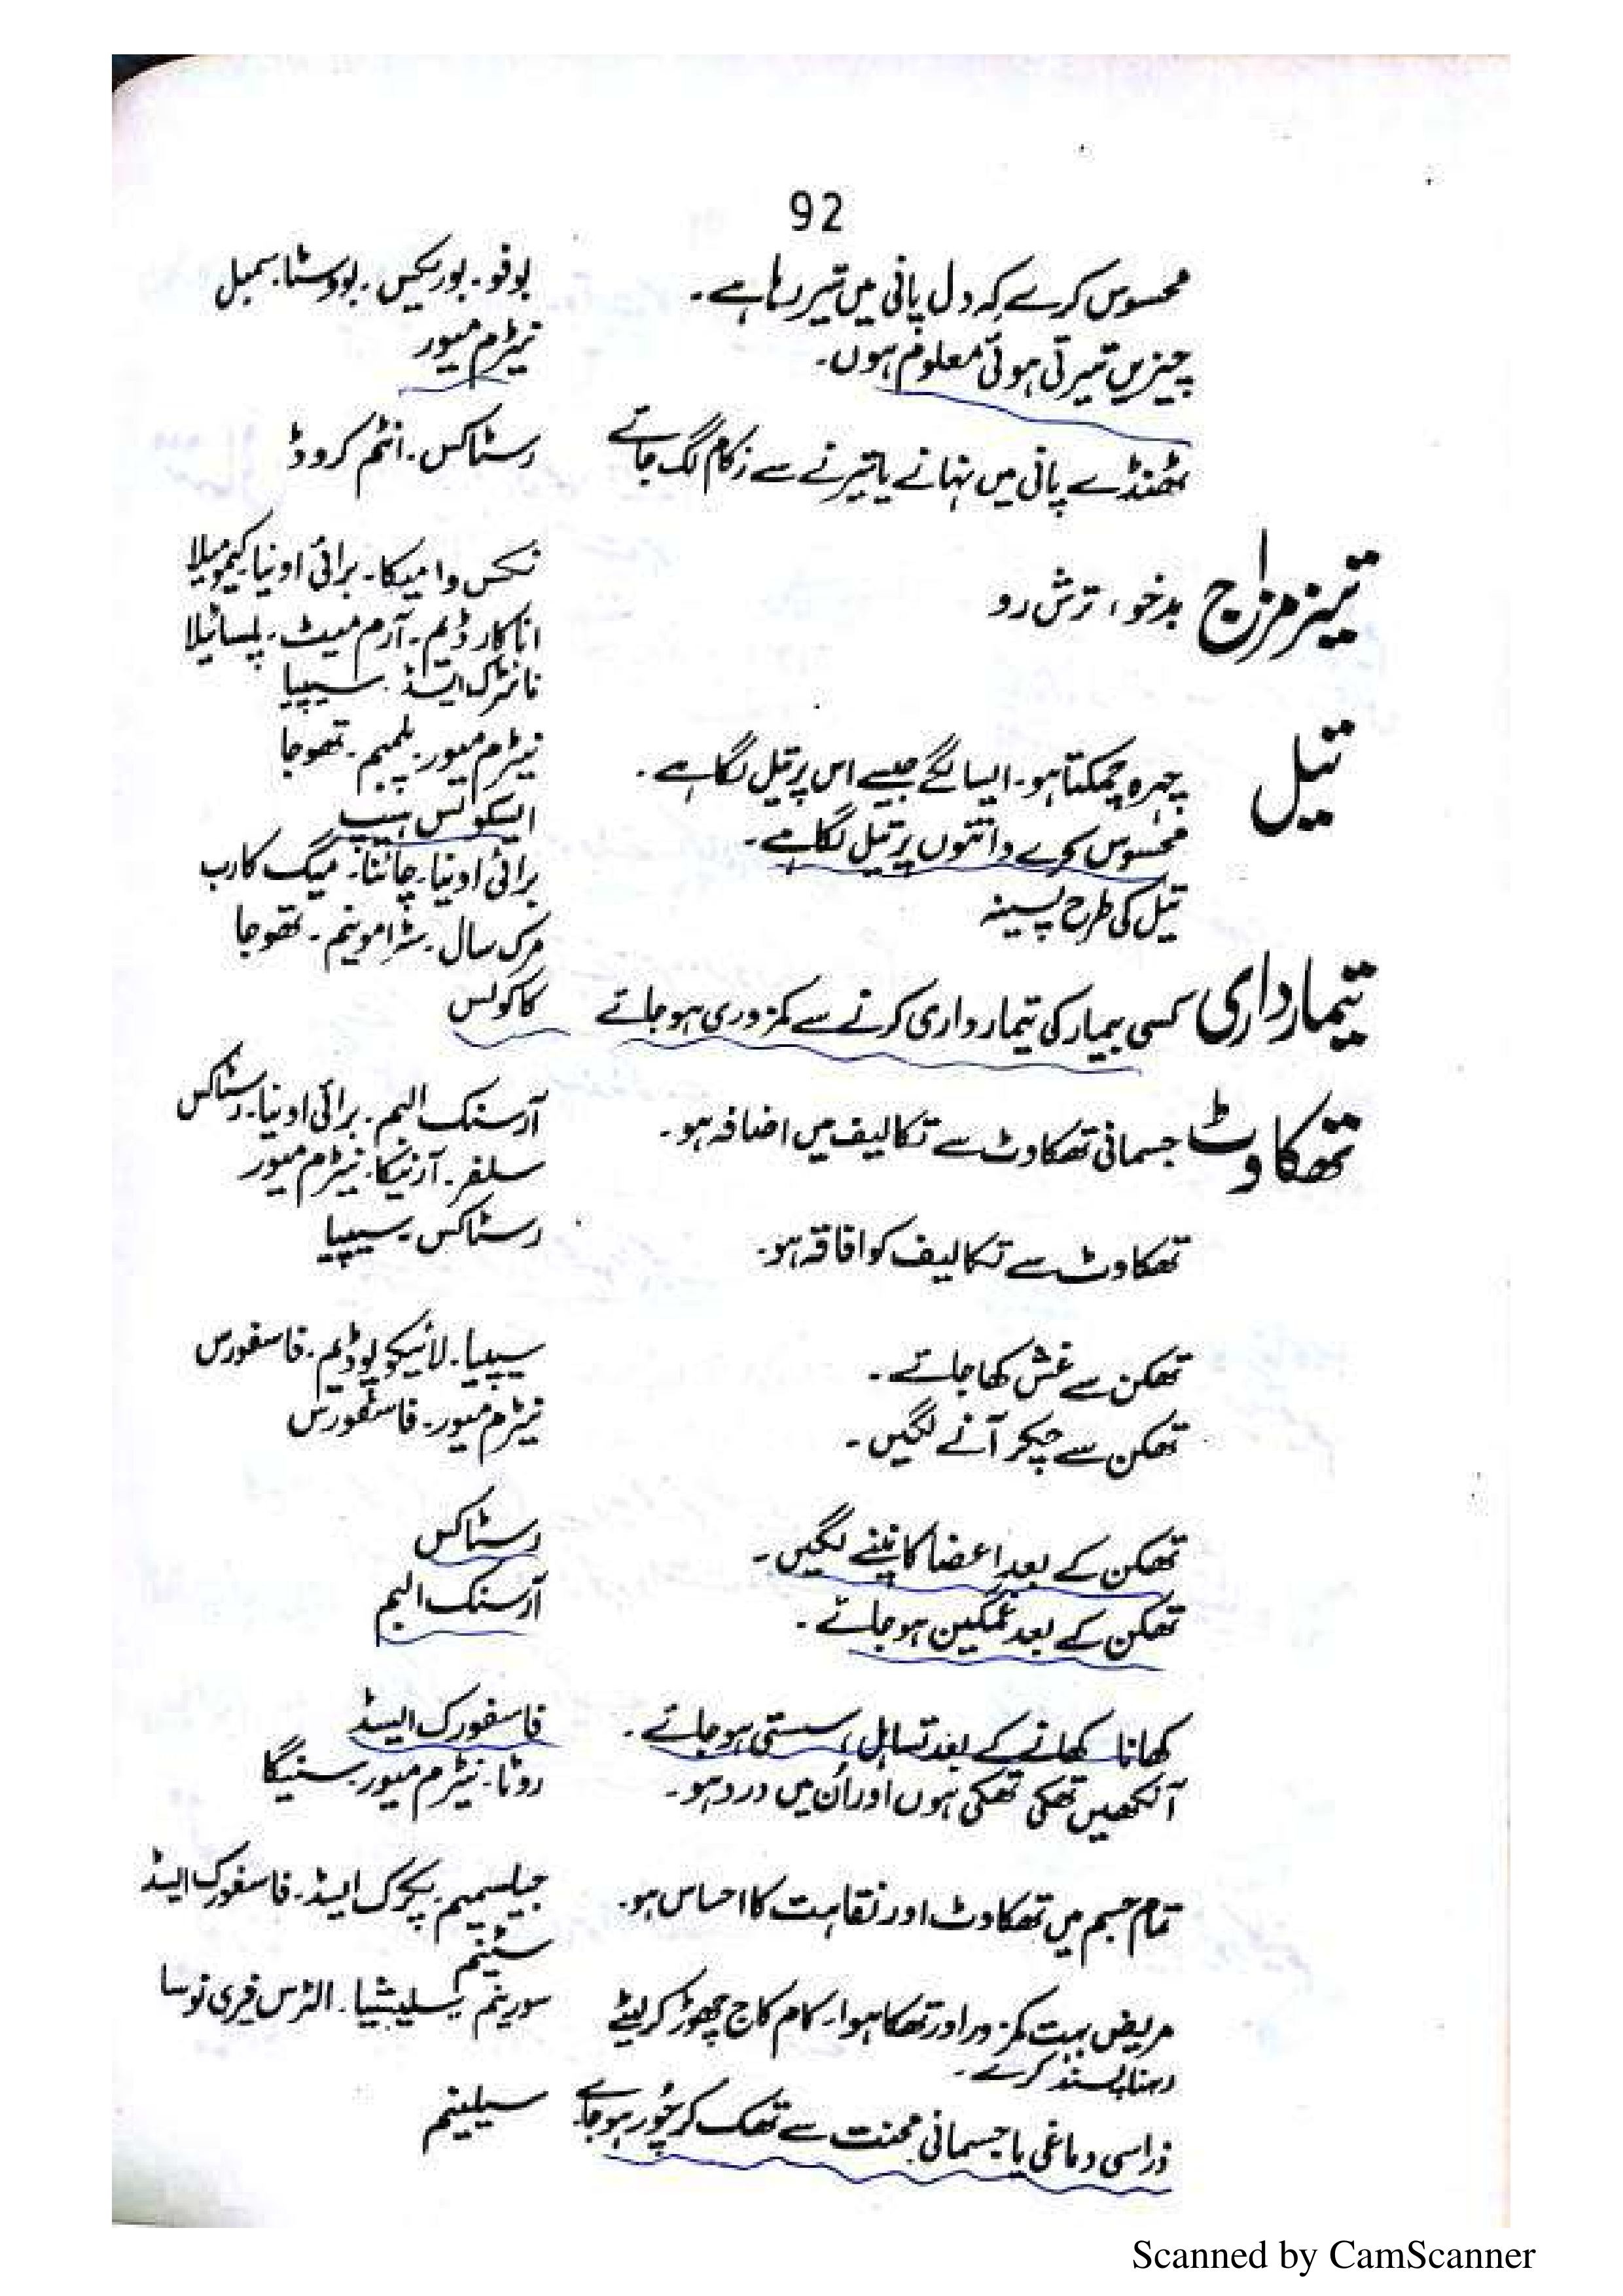 92
محسوس کرے کہ دل پانی میں تیر رہا ہے۔ بوفو۔ بوریکس۔ بووسٹا۔ سمبل
چیزیں تیرتی ہوئی معلوم ہوں۔ نیٹرم میور
ٹھنڈے پانی میں نہانے یا تیرنے سے زکام لگ جائے رسٹاکس۔ انٹم کروڈ
تیز مزاج بدخو، ترش رو نکس وامیکا۔ برائی اونیا۔ کیمومیلا
اناکارڈیم۔ آرم میٹ۔ پلساٹیلا
نائٹرک ایسڈ۔ سیپیا
تیل چہرہ چمکتا ہو۔ ایسا لگے جیسے اس پر تیل لگا ہے۔ نیٹرم میور۔ پلمبم۔ تھوجا
محسوس کرے دانتوں پر تیل لگا ہے۔ ایسکولس ہیپ
تیل کی طرح پسینہ برائی اونیا۔ چائنا۔ میگ کارب
مرک سال۔ سٹرامونیم۔ تھوجا
تیمارداری کسی بیمار کی تیمارداری کرنے سے کمزوری ہو جائے کاکولس
تھکاوٹ جسمانی تھکاوٹ سے تکالیف میں اضافہ ہو۔ آرسنک البم۔ برائی اونیا۔ رسٹاکس
سلفر۔ آرنیکا۔ نیٹرم میور
تھکاوٹ سے تکالیف کو افاقہ ہو۔ رسٹاکس۔ سیپیا
تھکن سے غش کھا جائے۔ سیپیا۔ لائیکوپوڈیم۔ فاسفورس
تھکن سے چکر آنے لگیں۔ نیٹرم میور۔ فاسفورس
تھکن کے بعد اعضا کانپنے لگیں۔ رسٹاکس
تھکن کے بعد غمگین ہو جائے۔ آرسنک البم
کھانا کھانے کے بعد تساہل، سستی ہو جائے۔ فاسفورک ایسڈ
آنکھیں تھکی تھکی ہوں اور اُن میں درد ہو۔ روٹا۔ نیٹرم میور۔ سنیگا
تمام جسم میں تھکاوٹ اور نقاہت کا احساس ہو۔ جیلسیمیم۔ پکرک ایسڈ۔ فاسفورک ایسڈ
سٹینم
مریض بہت کمزور اور تھکا ہوا۔ کام کاج چھوڑ کر لیٹے سورینم۔ سلیشیا۔ الٹرس فیری نوسا
رہنا پسند کرے۔
ذرا سی دماغی یا جسمانی محنت سے تھک کر چُور ہو جائے سیلینیم
Scanned by CamScanner